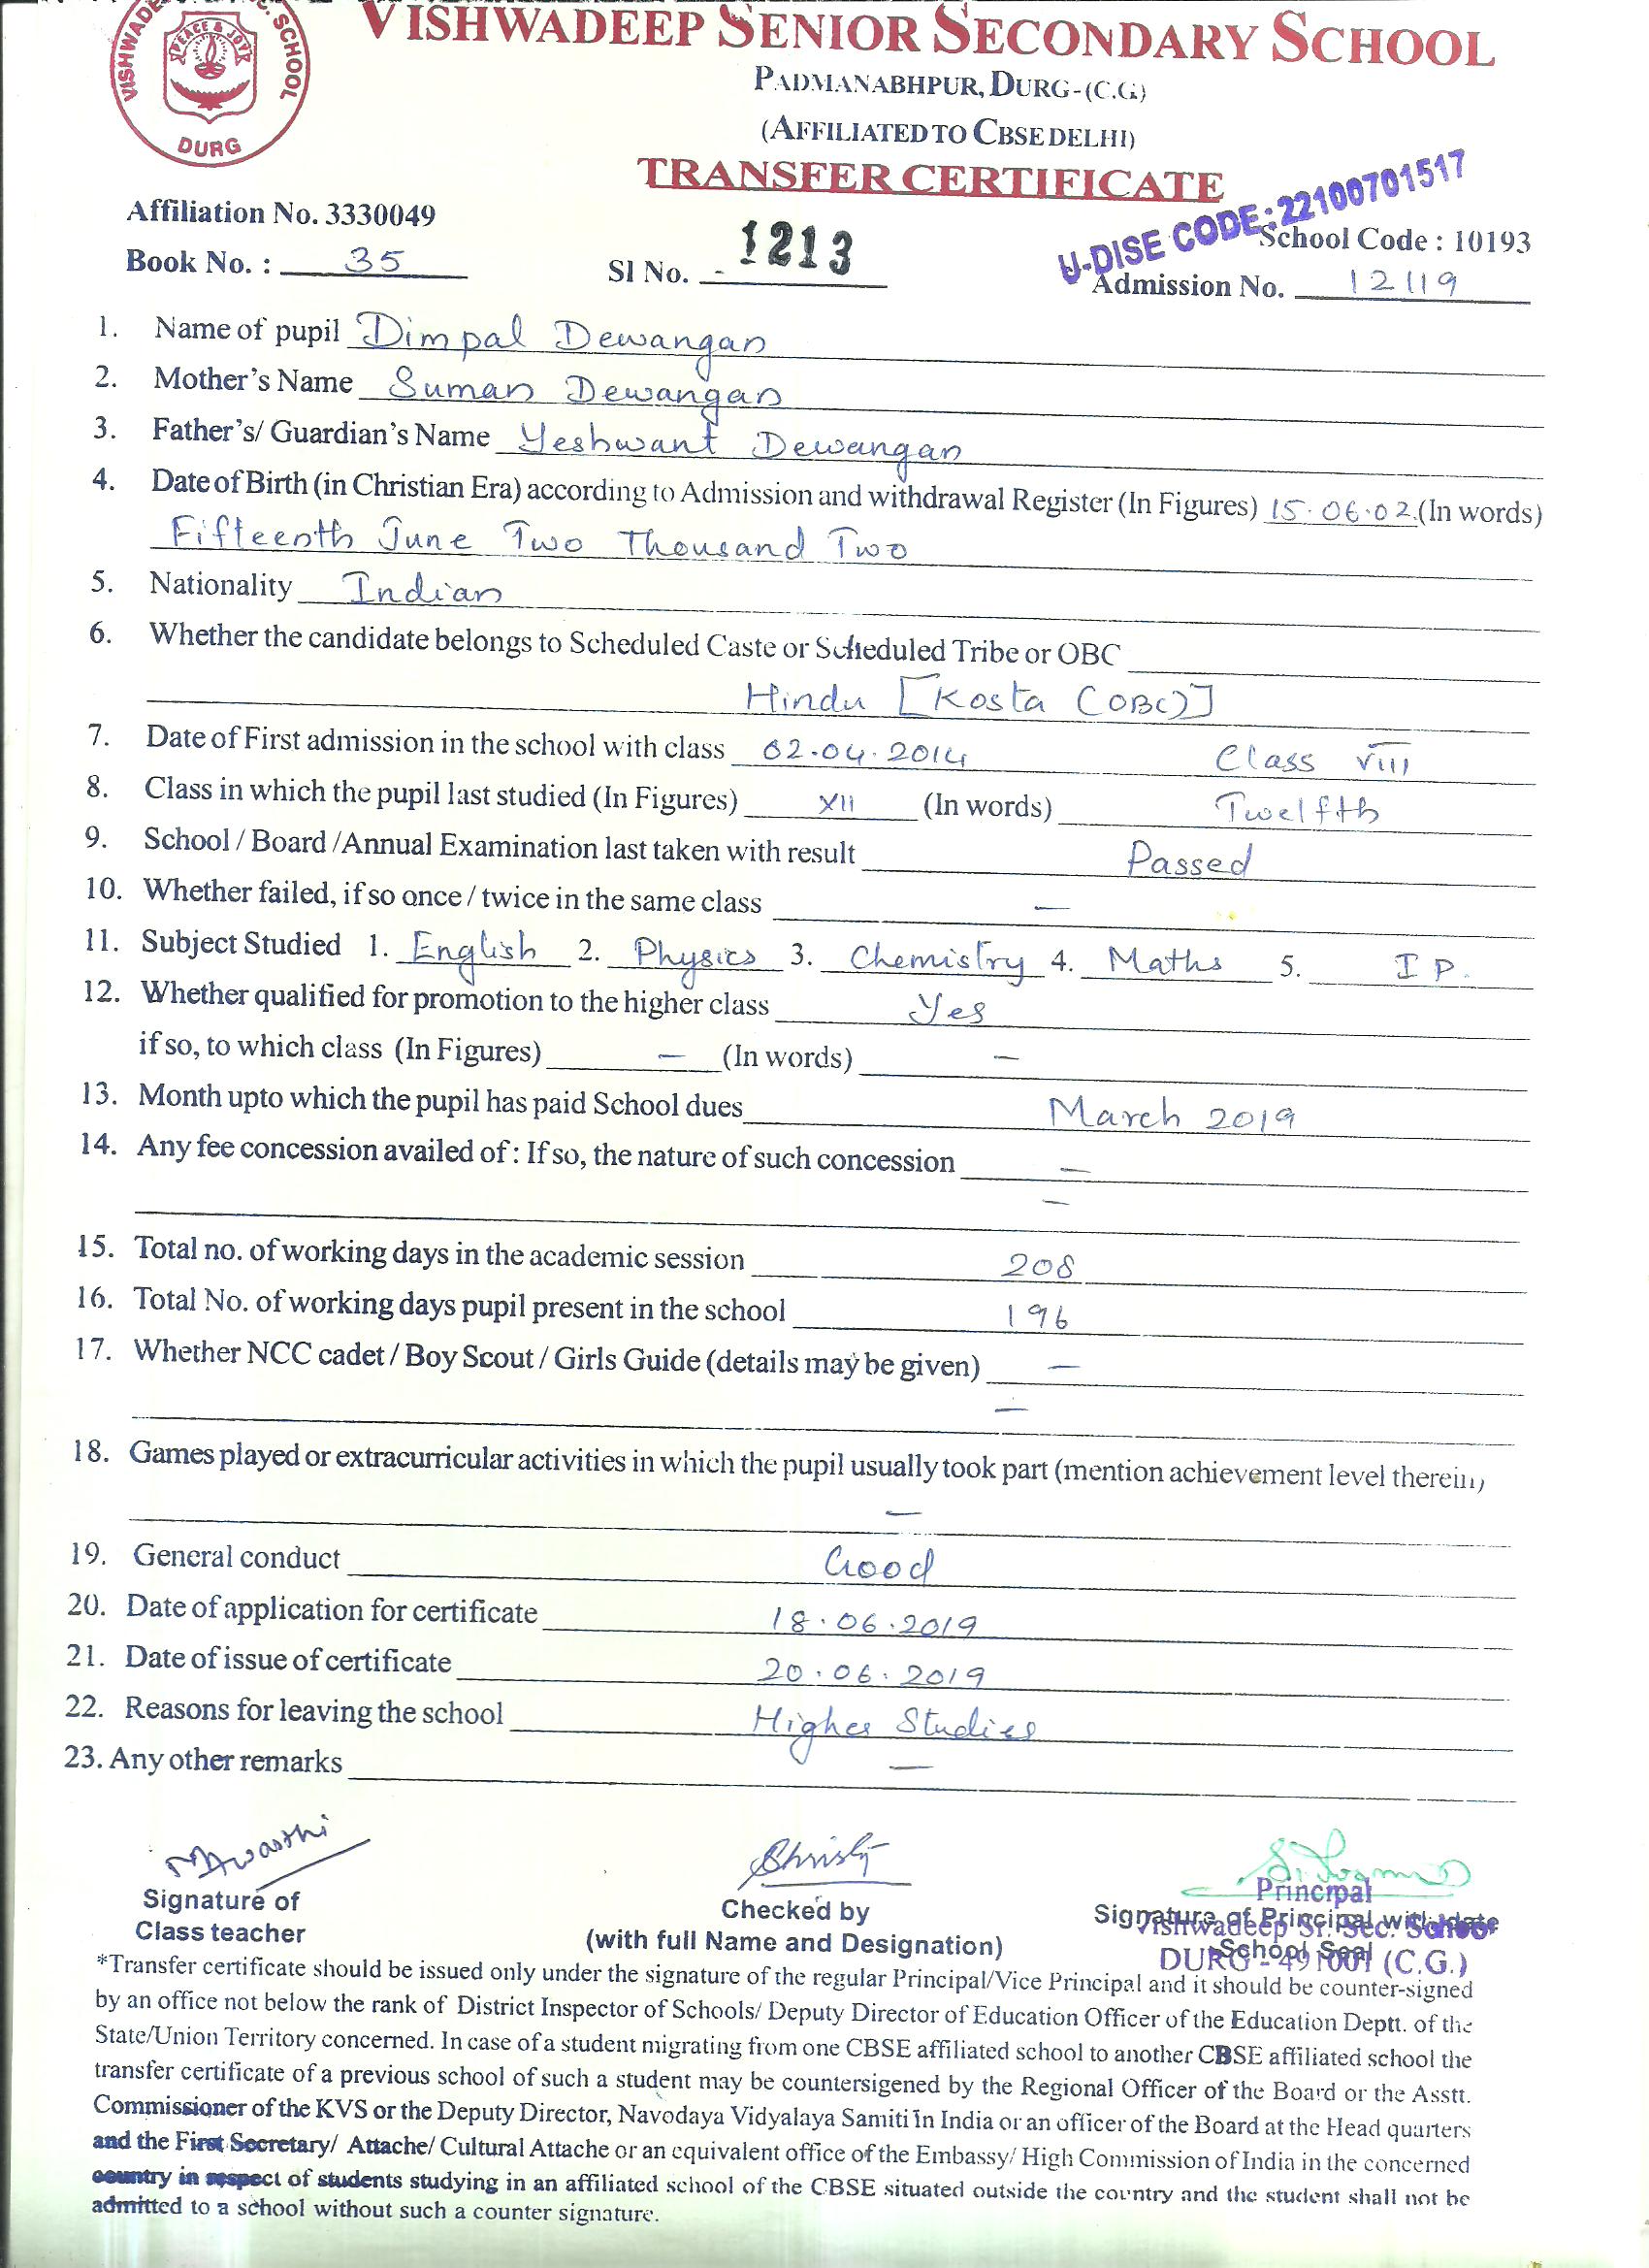 VISHWADEEP SENIOR SECONDARY SCHOOL
PEACE & JOY
DURG
PADMANABHPUR, DURG-(C.G)
(AFFILIATED TO CBSE DELHI)
TRANSFER CERTIFICATE
U-DISE CODE:22100701517
Affiliation No. 3330049 School Code : 10193
Book No. : 35 Sl No. - 1213 Admission No. 12119
1. Name of pupil Dimpal Dewangan
2. Mother's Name Suman Dewangan
3. Father's/ Guardian's Name Yeshwant Dewangan
4. Date of Birth (in Christian Era) according to Admission and withdrawal Register (In Figures) 15.06.02.(In words)
Fifteenth June Two Thousand Two
5. Nationality Indian
6. Whether the candidate belongs to Scheduled Caste or Scheduled Tribe or OBC
Hindu [Kosta (OBC)]
7. Date of First admission in the school with class 02.04.2014 Class VIII
8. Class in which the pupil last studied (In Figures) XII (In words) Twelfth
9. School / Board /Annual Examination last taken with result Passed
10. Whether failed, if so once / twice in the same class —
11. Subject Studied 1. English 2. Physics 3. Chemistry 4. Maths 5. I P.
12. Whether qualified for promotion to the higher class Yes
if so, to which class (In Figures) — (In words) —
13. Month upto which the pupil has paid School dues March 2019
14. Any fee concession availed of : If so, the nature of such concession —
—
15. Total no. of working days in the academic session 208
16. Total No. of working days pupil present in the school 196
17. Whether NCC cadet / Boy Scout / Girls Guide (details may be given) —
—
18. Games played or extracurricular activities in which the pupil usually took part (mention achievement level therein)
—
19. General conduct Good
20. Date of application for certificate 18.06.2019
21. Date of issue of certificate 20.06.2019
22. Reasons for leaving the school Higher Studies
23. Any other remarks —
Principal
Signature of Checked by Signature of Principal with date
Vishwadeep Sr. Sec. School
Class teacher (with full Name and Designation) School Seal
DURG - 491001 (C.G.)
*Transfer certificate should be issued only under the signature of the regular Principal/Vice Principal and it should be counter-signed
by an office not below the rank of District Inspector of Schools/ Deputy Director of Education Officer of the Education Deptt. of the
State/Union Territory concerned. In case of a student migrating from one CBSE affiliated school to another CBSE affiliated school the
transfer certificate of a previous school of such a student may be countersigened by the Regional Officer of the Board or the Asstt.
Commissioner of the KVS or the Deputy Director, Navodaya Vidyalaya Samiti In India or an officer of the Board at the Head quarters
and the First Secretary/ Attache/ Cultural Attache or an equivalent office of the Embassy/ High Commission of India in the concerned
country in respect of students studying in an affiliated school of the CBSE situated outside the country and the student shall not be
admitted to a school without such a counter signature.